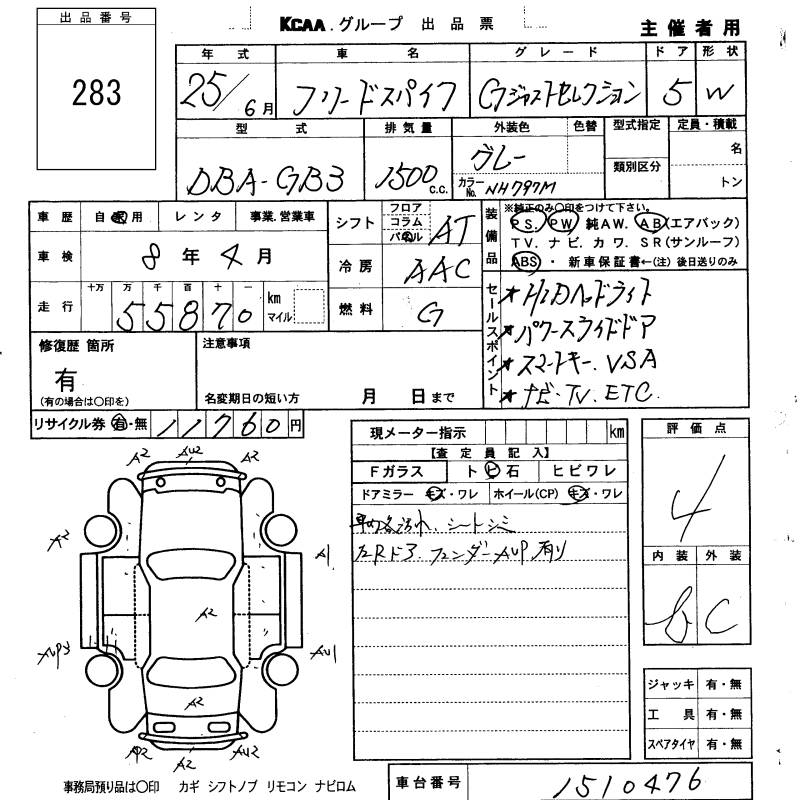 出品番号
283
KCAA.グループ 出品票
主催者用
年式 車名 グレード ドア 形状
25/6月 フリードスパイク Gジャストセレクション 5 W
型式 排気量 外装色 色替 型式指定 定員・積載
DBA-GB3 1500c.c. グレー
カラーNo. NH797M
類別区分
名
トン
車歴 自家用 レンタ 事業.営業車
車検 8年4月
走行 十万 万 千 百 十 一
55870 km マイル
シフト フロア コラム パネル AT
冷房 AAC
燃料 G
装備品
※純正のみ〇印をつけて下さい。
PS. PW 純AW. AB(エアバック)
TV. ナビ. カワ. SR(サンルーフ)
ABS・新車保証書←(注)後日送りのみ
セールスポイント
★HIDヘッドライト
★パワースライドドア
★スマートキー. VSA
★ナビ・TV. ETC.
修復歴 箇所
有
(有の場合は〇印を)
注意事項
名変期日の短い方 月 日まで
リサイクル券 有・無 11760円
現メーター指示 km
【査定員記入】
Fガラス ト ビ 石 ヒビワレ
ドアミラー キズ・ワレ ホイール(CP) キズ・ワレ
車内各汚れ、シートシミ
左Rドア. フェンダーAUP有り
評価点
4
内装 外装
b C
A2 AU2 A2
A2 A1
A2
AUP3 AU1
A2
AP2 A2 AU2
ジャッキ 有・無
工具 有・無
スペアタイヤ 有・無
事務局預り品は〇印 カギ シフトノブ リモコン ナビロム
車台番号 1510476